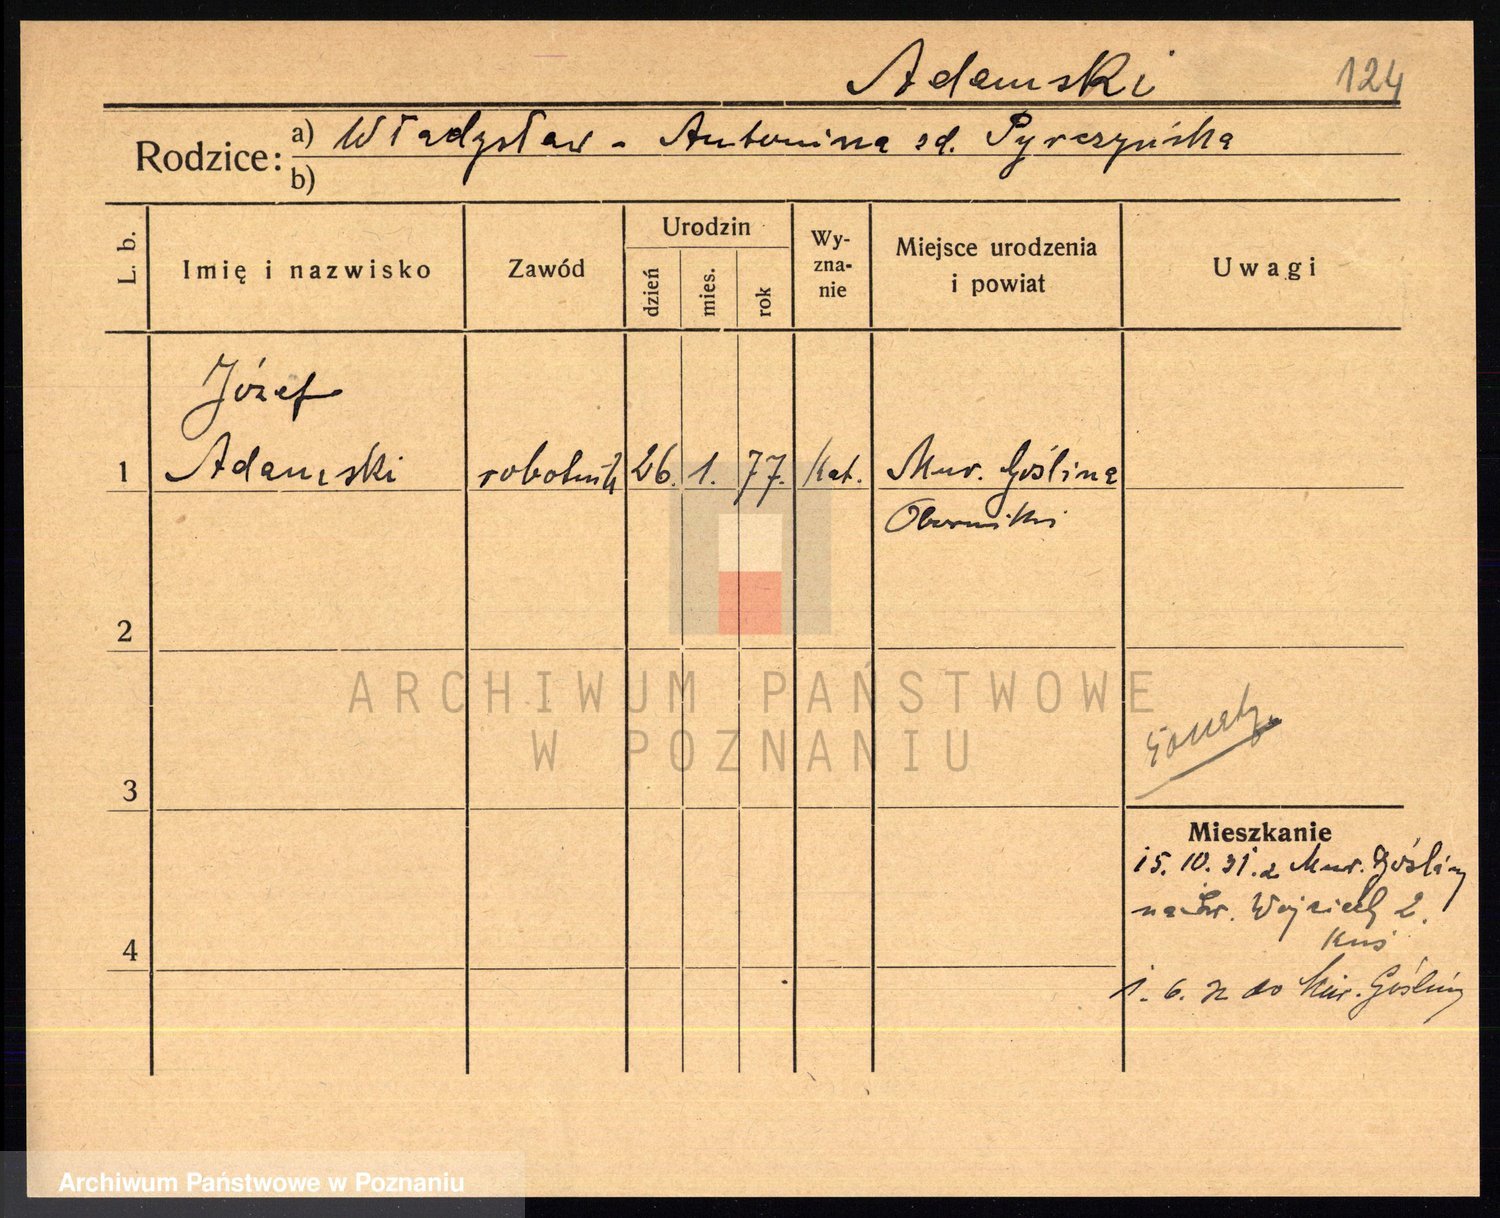 Adamski 124
Rodzice: a) Władysław - Antonina zd. Pyrczyńska
b)
L. b.
Imię i nazwisko
Zawód
Urodzin
dzień
mies.
rok
Wy-
zna-
nie
Miejsce urodzenia
i powiat
Uwagi
Józef
1 Adamski robotnik 26. 1. 77. Kat. Mur. Goślina
Oborniki
2
3
Mieszkanie
15. 10. 31. z Mur. Gośliny
na Św. Wojciech 2.
4
1. 6. 32 do Mur. Gośliny
ARCHIWUM PAŃSTWOWE
W POZNANIU
Archiwum Państwowe w Poznaniu